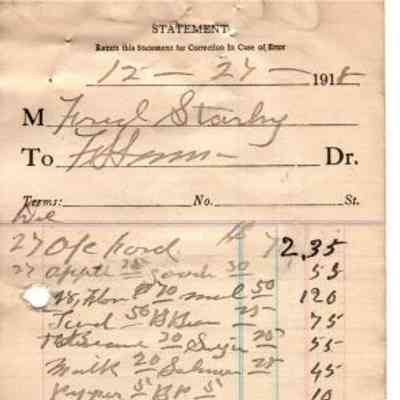 STATEMENT
Return this Statement for Correction In Case of Error
12 - 27 - 1918
M Fred Starby
To Dr.
Terms: No. St.
27 a/c ford 2.35
27 apple 25 goods 30 55
70 meal 50 120
50 B Bean 25 75
20 Sugar 35 55
Milk 20 Salmon 25 45
Pepper 5 BP 5 10